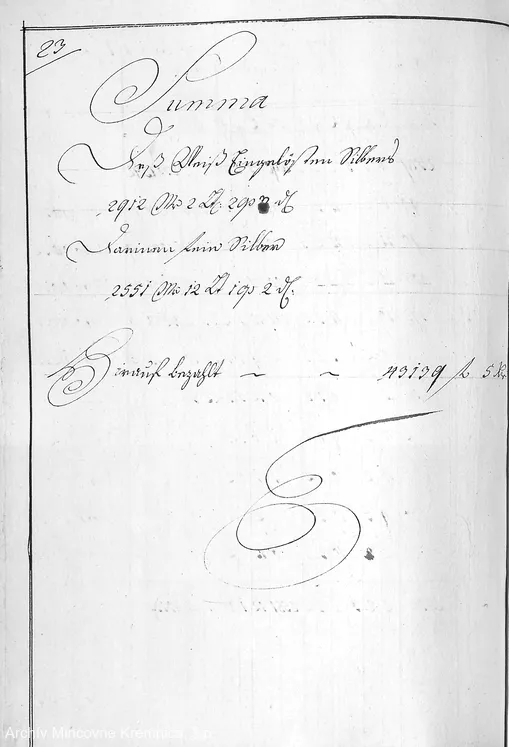 23
Summa
Deß Weiß Eingelösten Silbers
2912 Mr 2 Lt: 2 q 2 d
Darinnen fein Silber
2551 Mr 12 Lt 1 q 2 d:
Hierauf bezahlt ~ ~ 43139 f 5 kr
Archív Mincovne Kremnica, š.p.